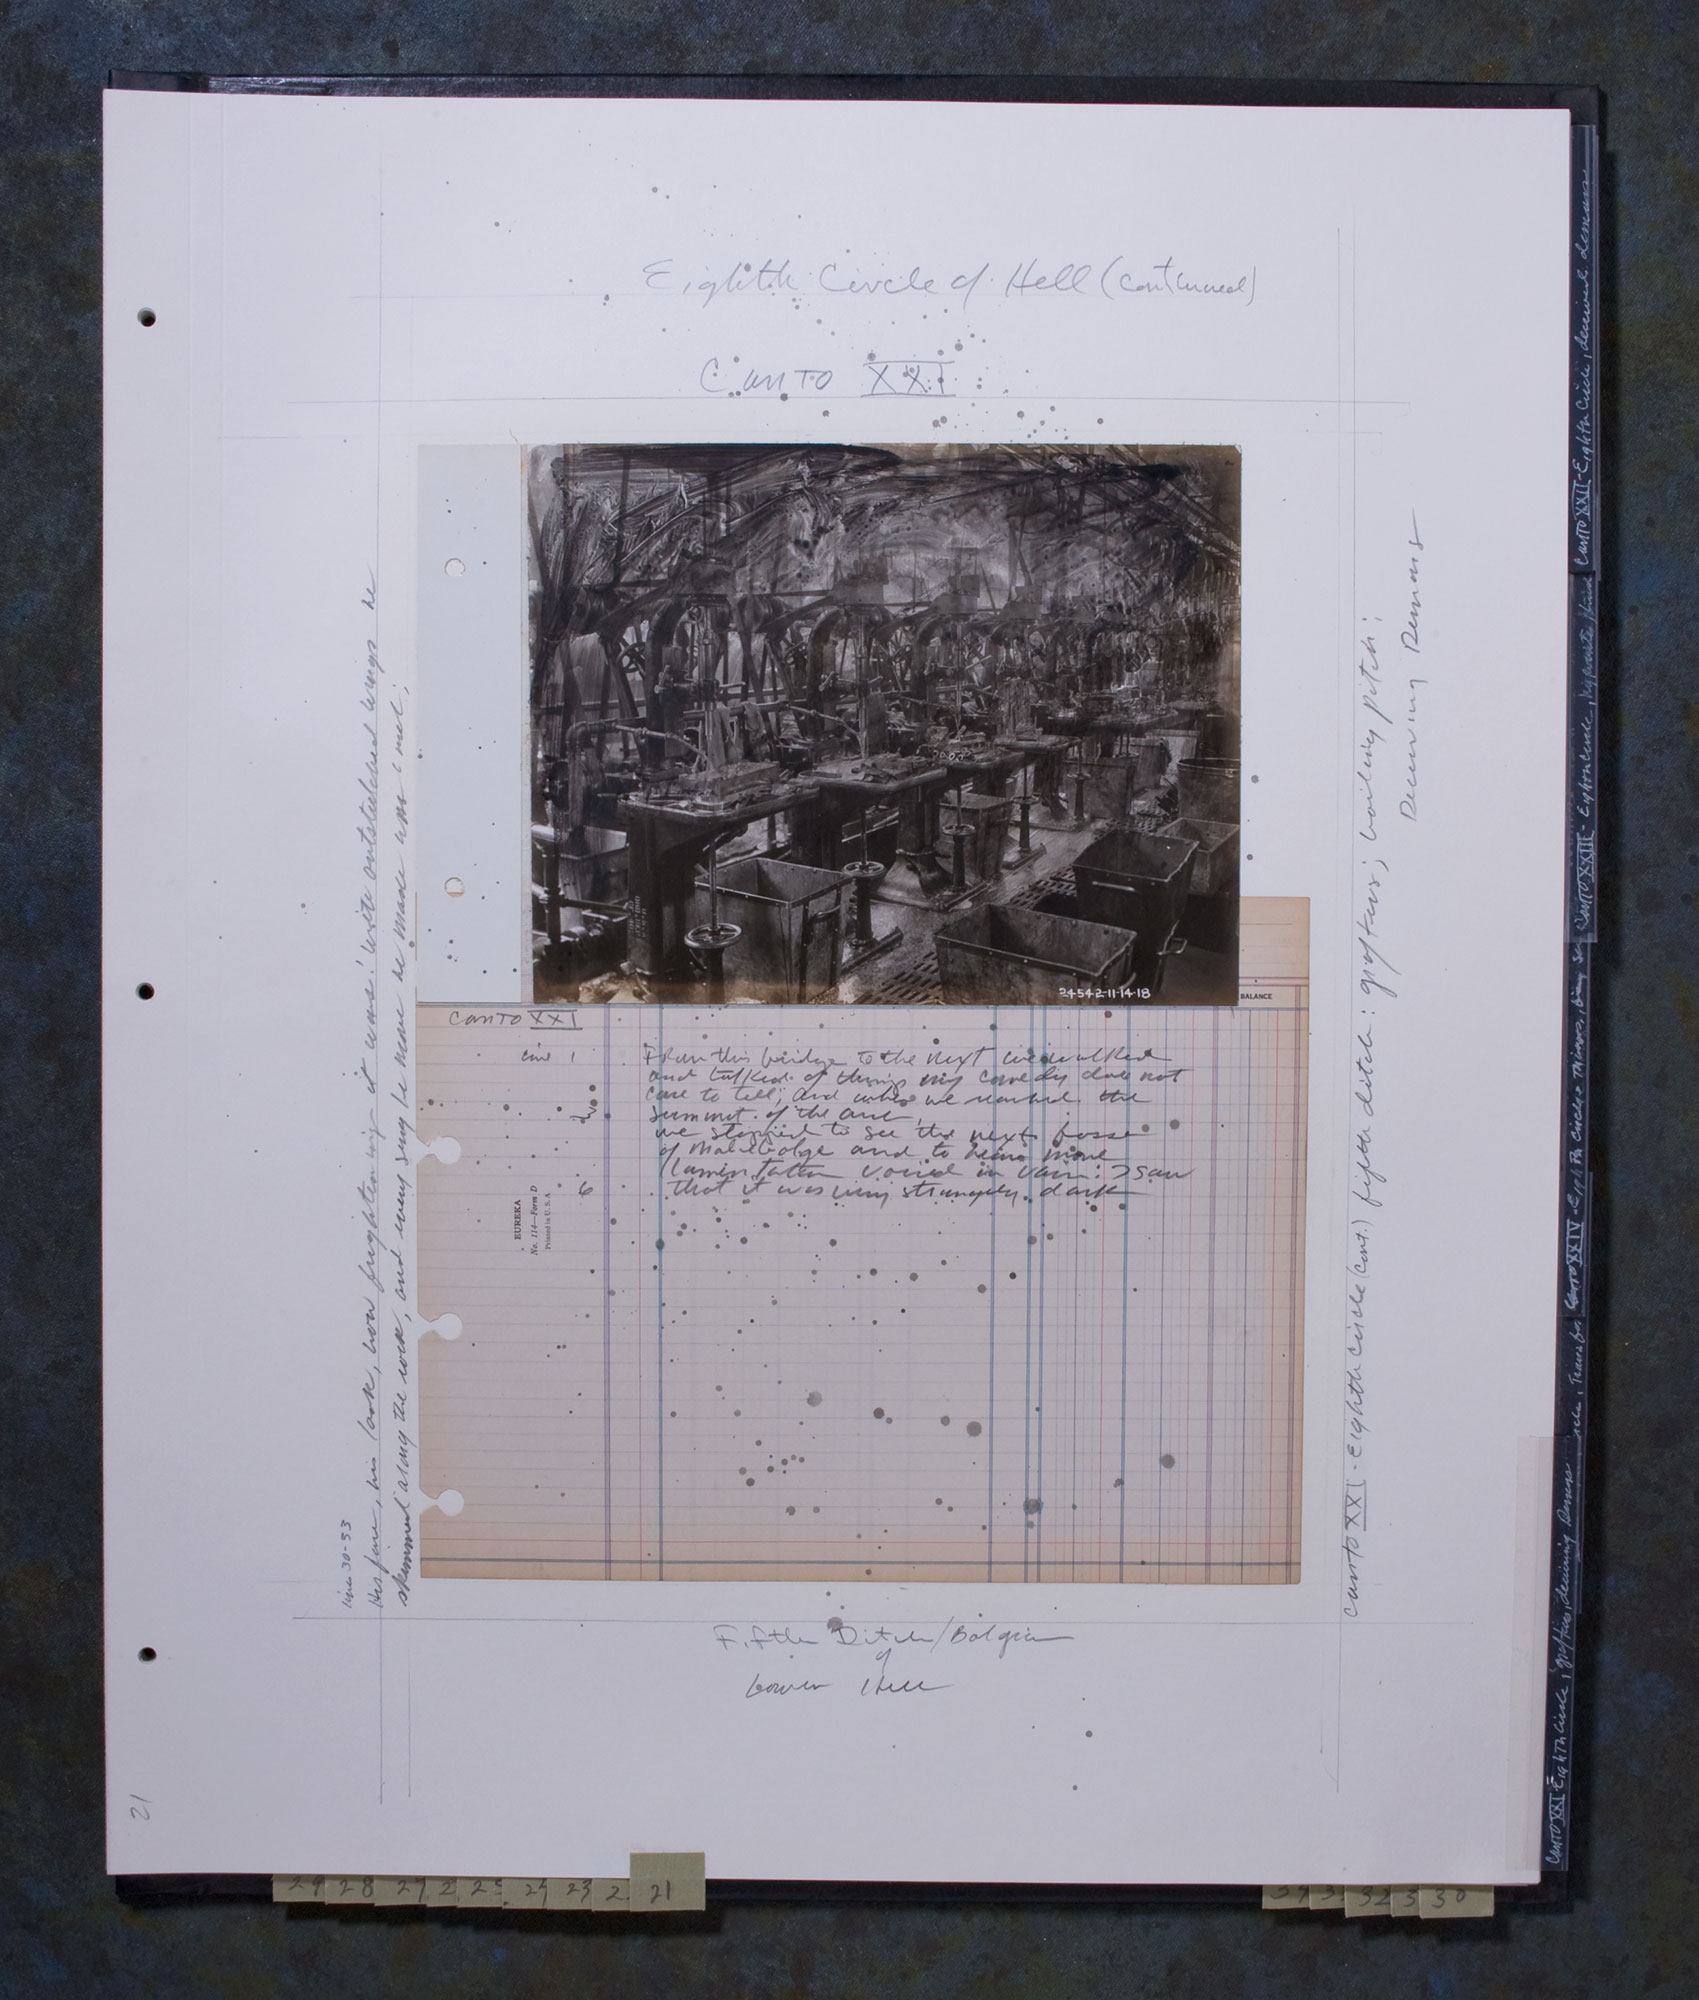 Eighth Circle of Hell (continued)
CANTO XXI
24542-11-14-18
BALANCE
CANTO XXI
line 1
From this bridge to the next we walked
and talked of things my comedy does not
care to tell; and when we reached the
summit of the arc,
we stopped to see the next fosse
of Malebolge and to hear more
lamentation voiced in vain: I saw
6
that it was very strangely dark
EUREKA
No. 114—Form D
Printed in U.S.A
Fifth Ditch/Bolgia
of
Lower Hell
line 30-33
his look, how frightening it was! With outstretched wings he
skimmed along the rock, and every single move he made was cruel;
CANTO XXI - Eighth Circle (cont.) fifth ditch: grafters; boiling pitch;
Deceiving Demons
CANTO XXI - Eighth Circle, grafters, deceiving Demons
CANTO XXIV - Eighth Circle thieves,
CANTO XXIII - Eighth Circle, hypocrites
CANTO XXII - Eighth Circle, deceived demons
21
29 28 27 2 25 24 23 2 21
3 32 3 30